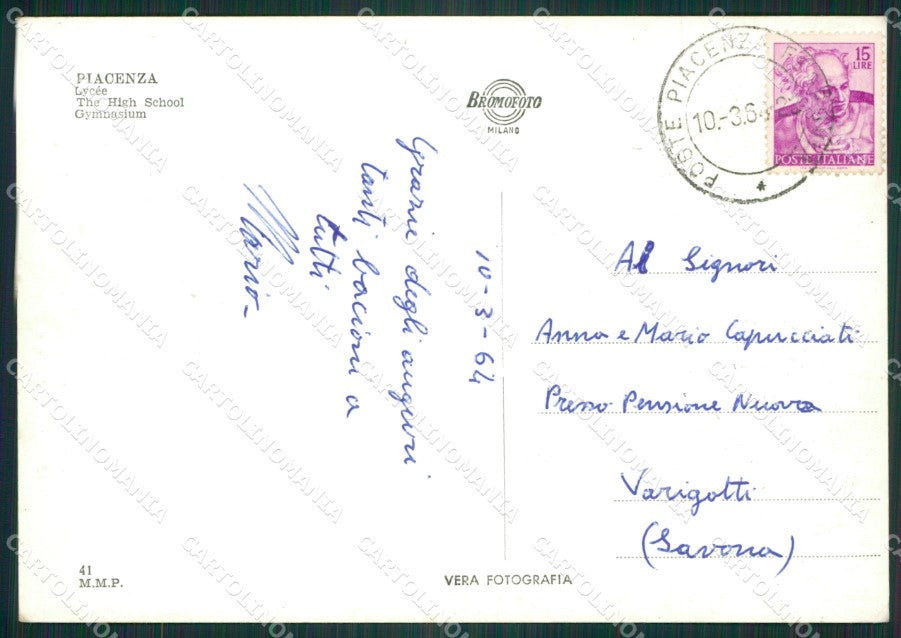 PIACENZA
Lycée
The High School
Gymnasium
BROMOFOTO
MILANO
POSTE PIACENZA
10.-3.64
15
LIRE
POSTE ITALIANE
10-3-64
Grazie degli auguri
tanti bacioni a
tutti
Mario-
Al Signori
Anna e Mario Capucciati
Presso Pensione Nuova
Varigotti
(Savona)
41
M.M.P.
VERA FOTOGRAFIA
CARTOLINOMANIA